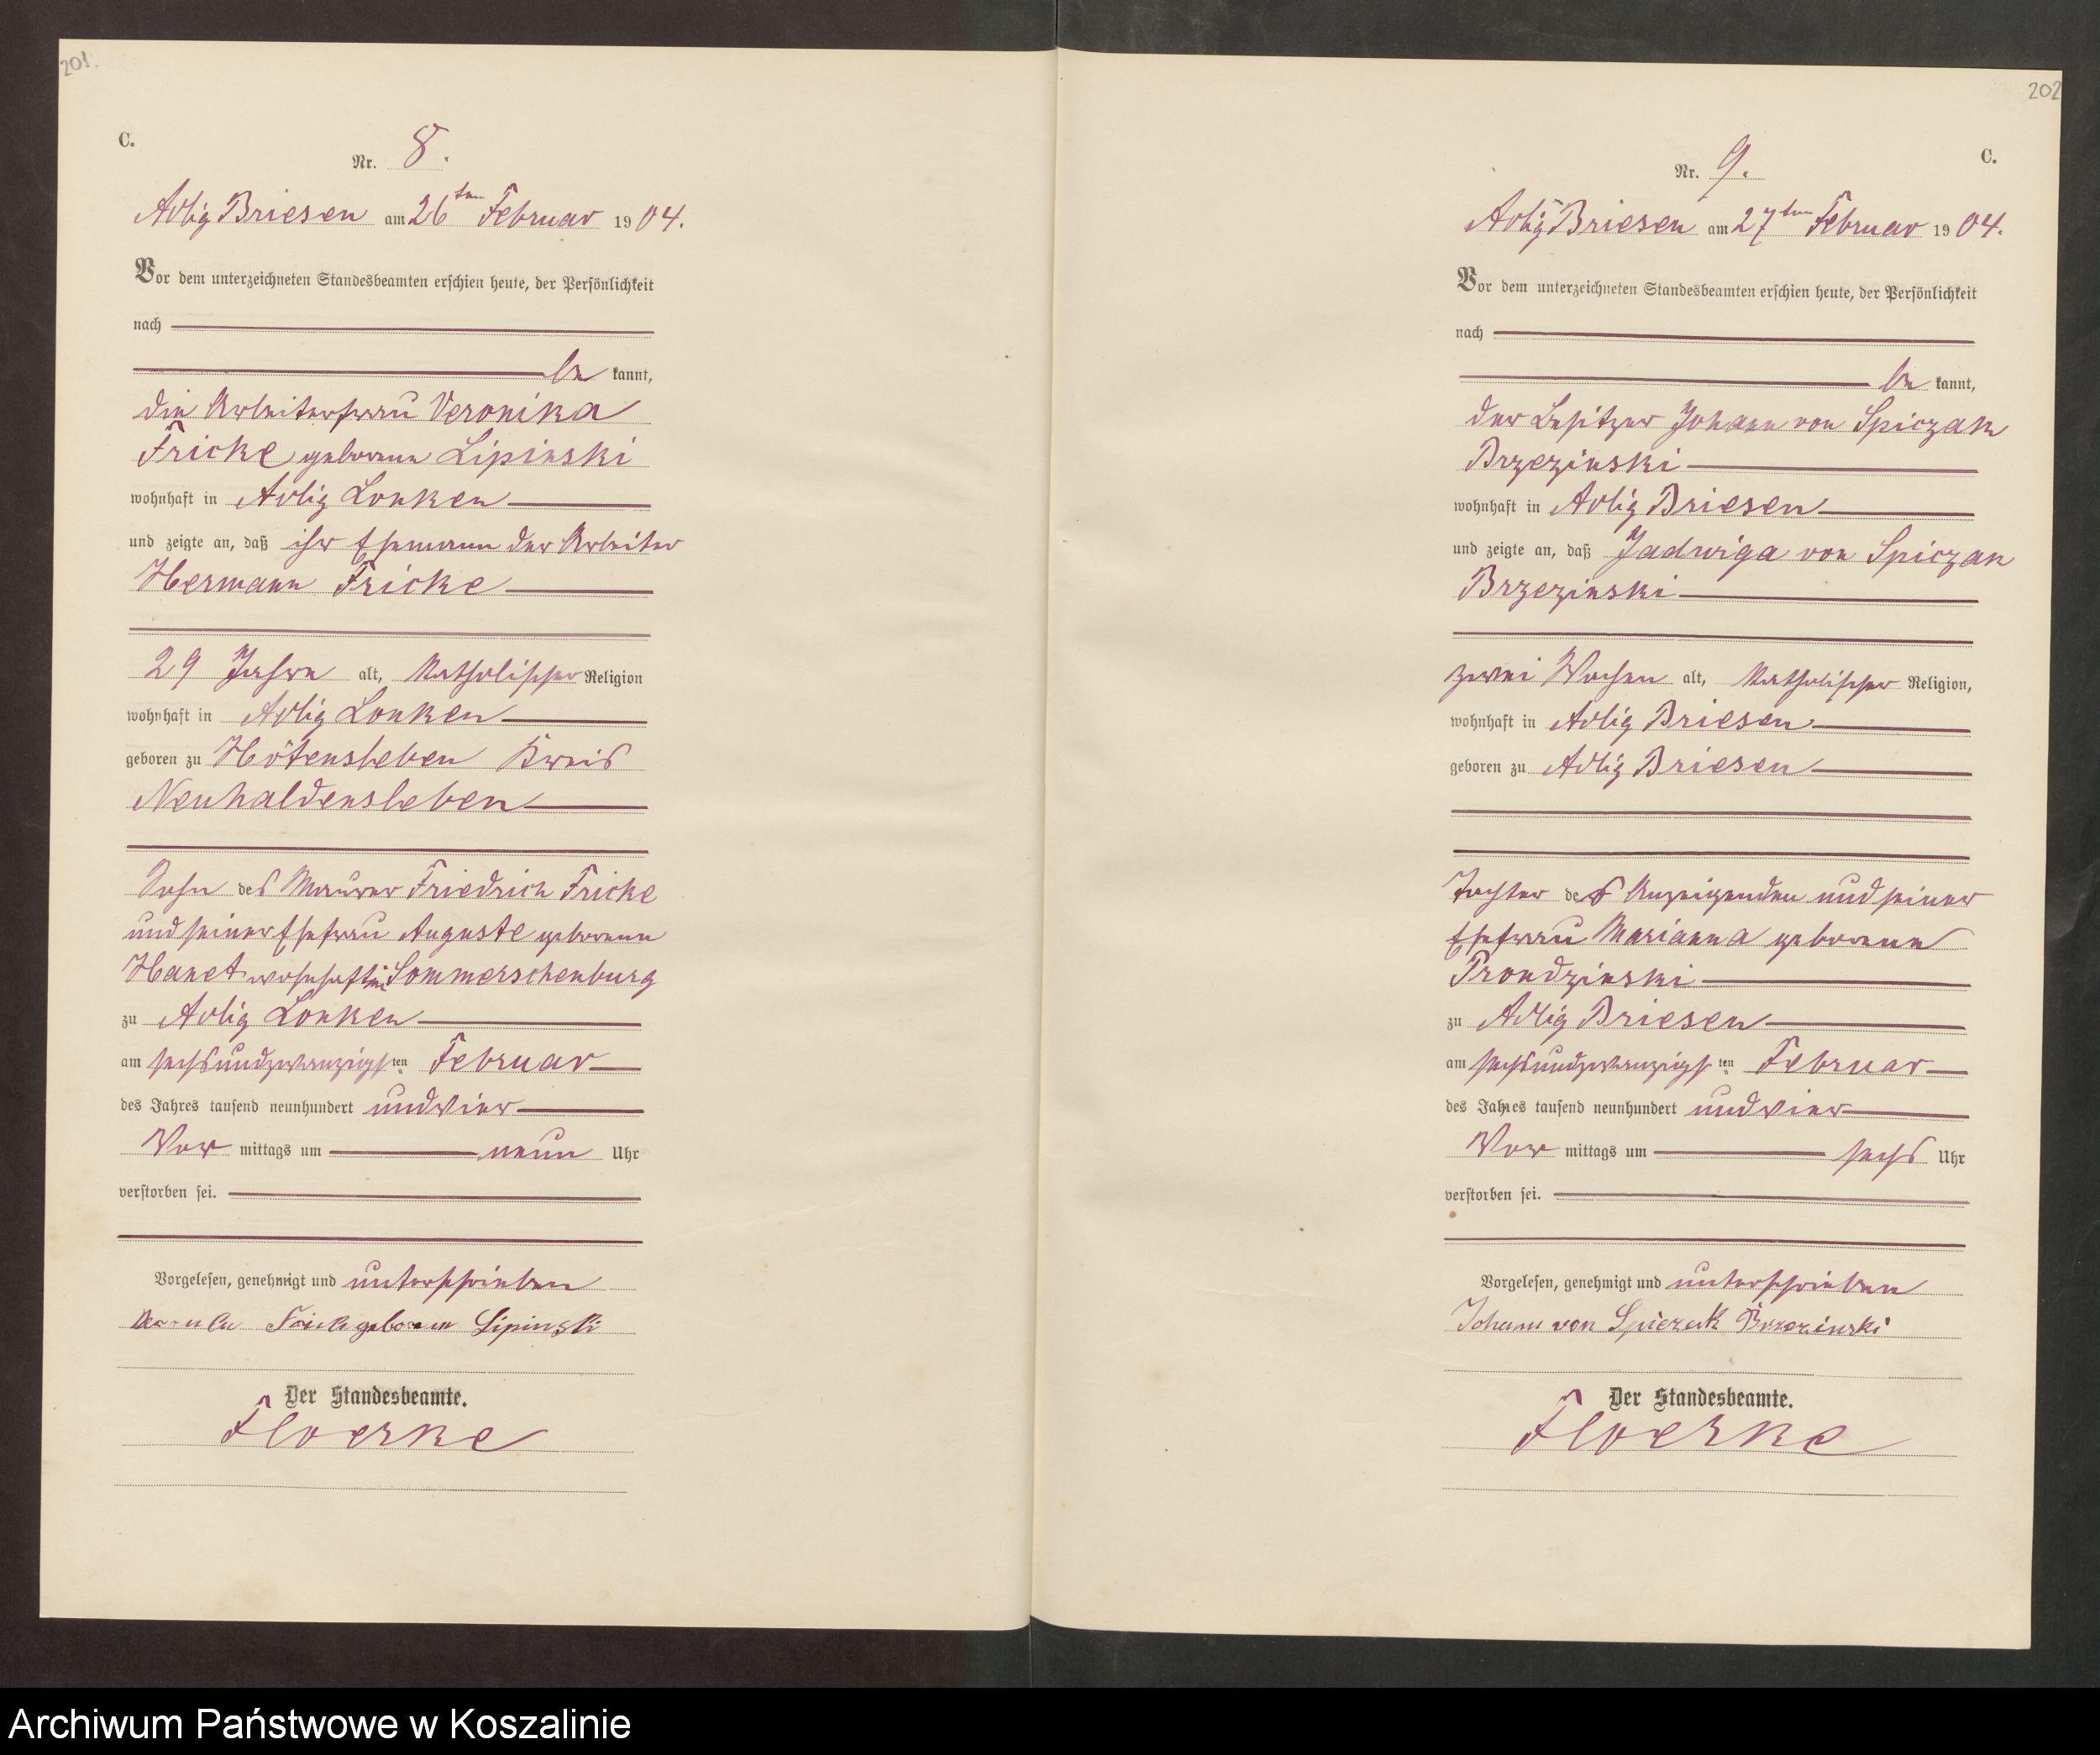 201.
C.
Nr. 8.
Adlig Briesen am 26ten Februar 1904.
Vor dem unterzeichneten Standesbeamten erschien heute, der Persönlichkeit
nach
be kannt,
die Arbeiterfrau Veronika
Fricke geborene Lipinski
wohnhaft in Adlig Lonken
und zeigte an, daß ihr Ehemann der Arbeiter
Hermann Fricke
29 Jahre alt, katholischer Religion
wohnhaft in Adlig Lonken
geboren zu Hötensleben Kreis
Neuhaldensleben
Sohn des Maurer Friedrich Fricke
und seiner Ehefrau Auguste geborene
Hanet wohnhaft in Sommerschenburg
zu Adlig Lonken
am sechsundzwanzigsten Februar
des Jahres tausend neunhundert und vier
Vor mittags um neun Uhr
verstorben sei.
Vorgelesen, genehmigt und unterschrieben
geborene Lipinski
Der Standesbeamte.
Floerke
202
C.
Nr. 9.
Adlig Briesen am 27ten Februar 1904.
Vor dem unterzeichneten Standesbeamten erschien heute, der Persönlichkeit
nach
be kannt,
der Besitzer Johann von Spiczak
Brzezinski
wohnhaft in Adlig Briesen
und zeigte an, daß Jadwiga von Spiczak
Brzezinski
zwei Wochen alt, katholischer Religion,
wohnhaft in Adlig Briesen
geboren zu Adlig Briesen
Tochter des Anzeigenden und seiner
Ehefrau Marianna geborene
Prondzinski
zu Adlig Briesen
am sechsundzwanzigsten Februar
des Jahres tausend neunhundert und vier
Vor mittags um sechs Uhr
verstorben sei.
Vorgelesen, genehmigt und unterschrieben
Johann von Spiczak Brzezinski
Der Standesbeamte.
Floerke
Archiwum Państwowe w Koszalinie